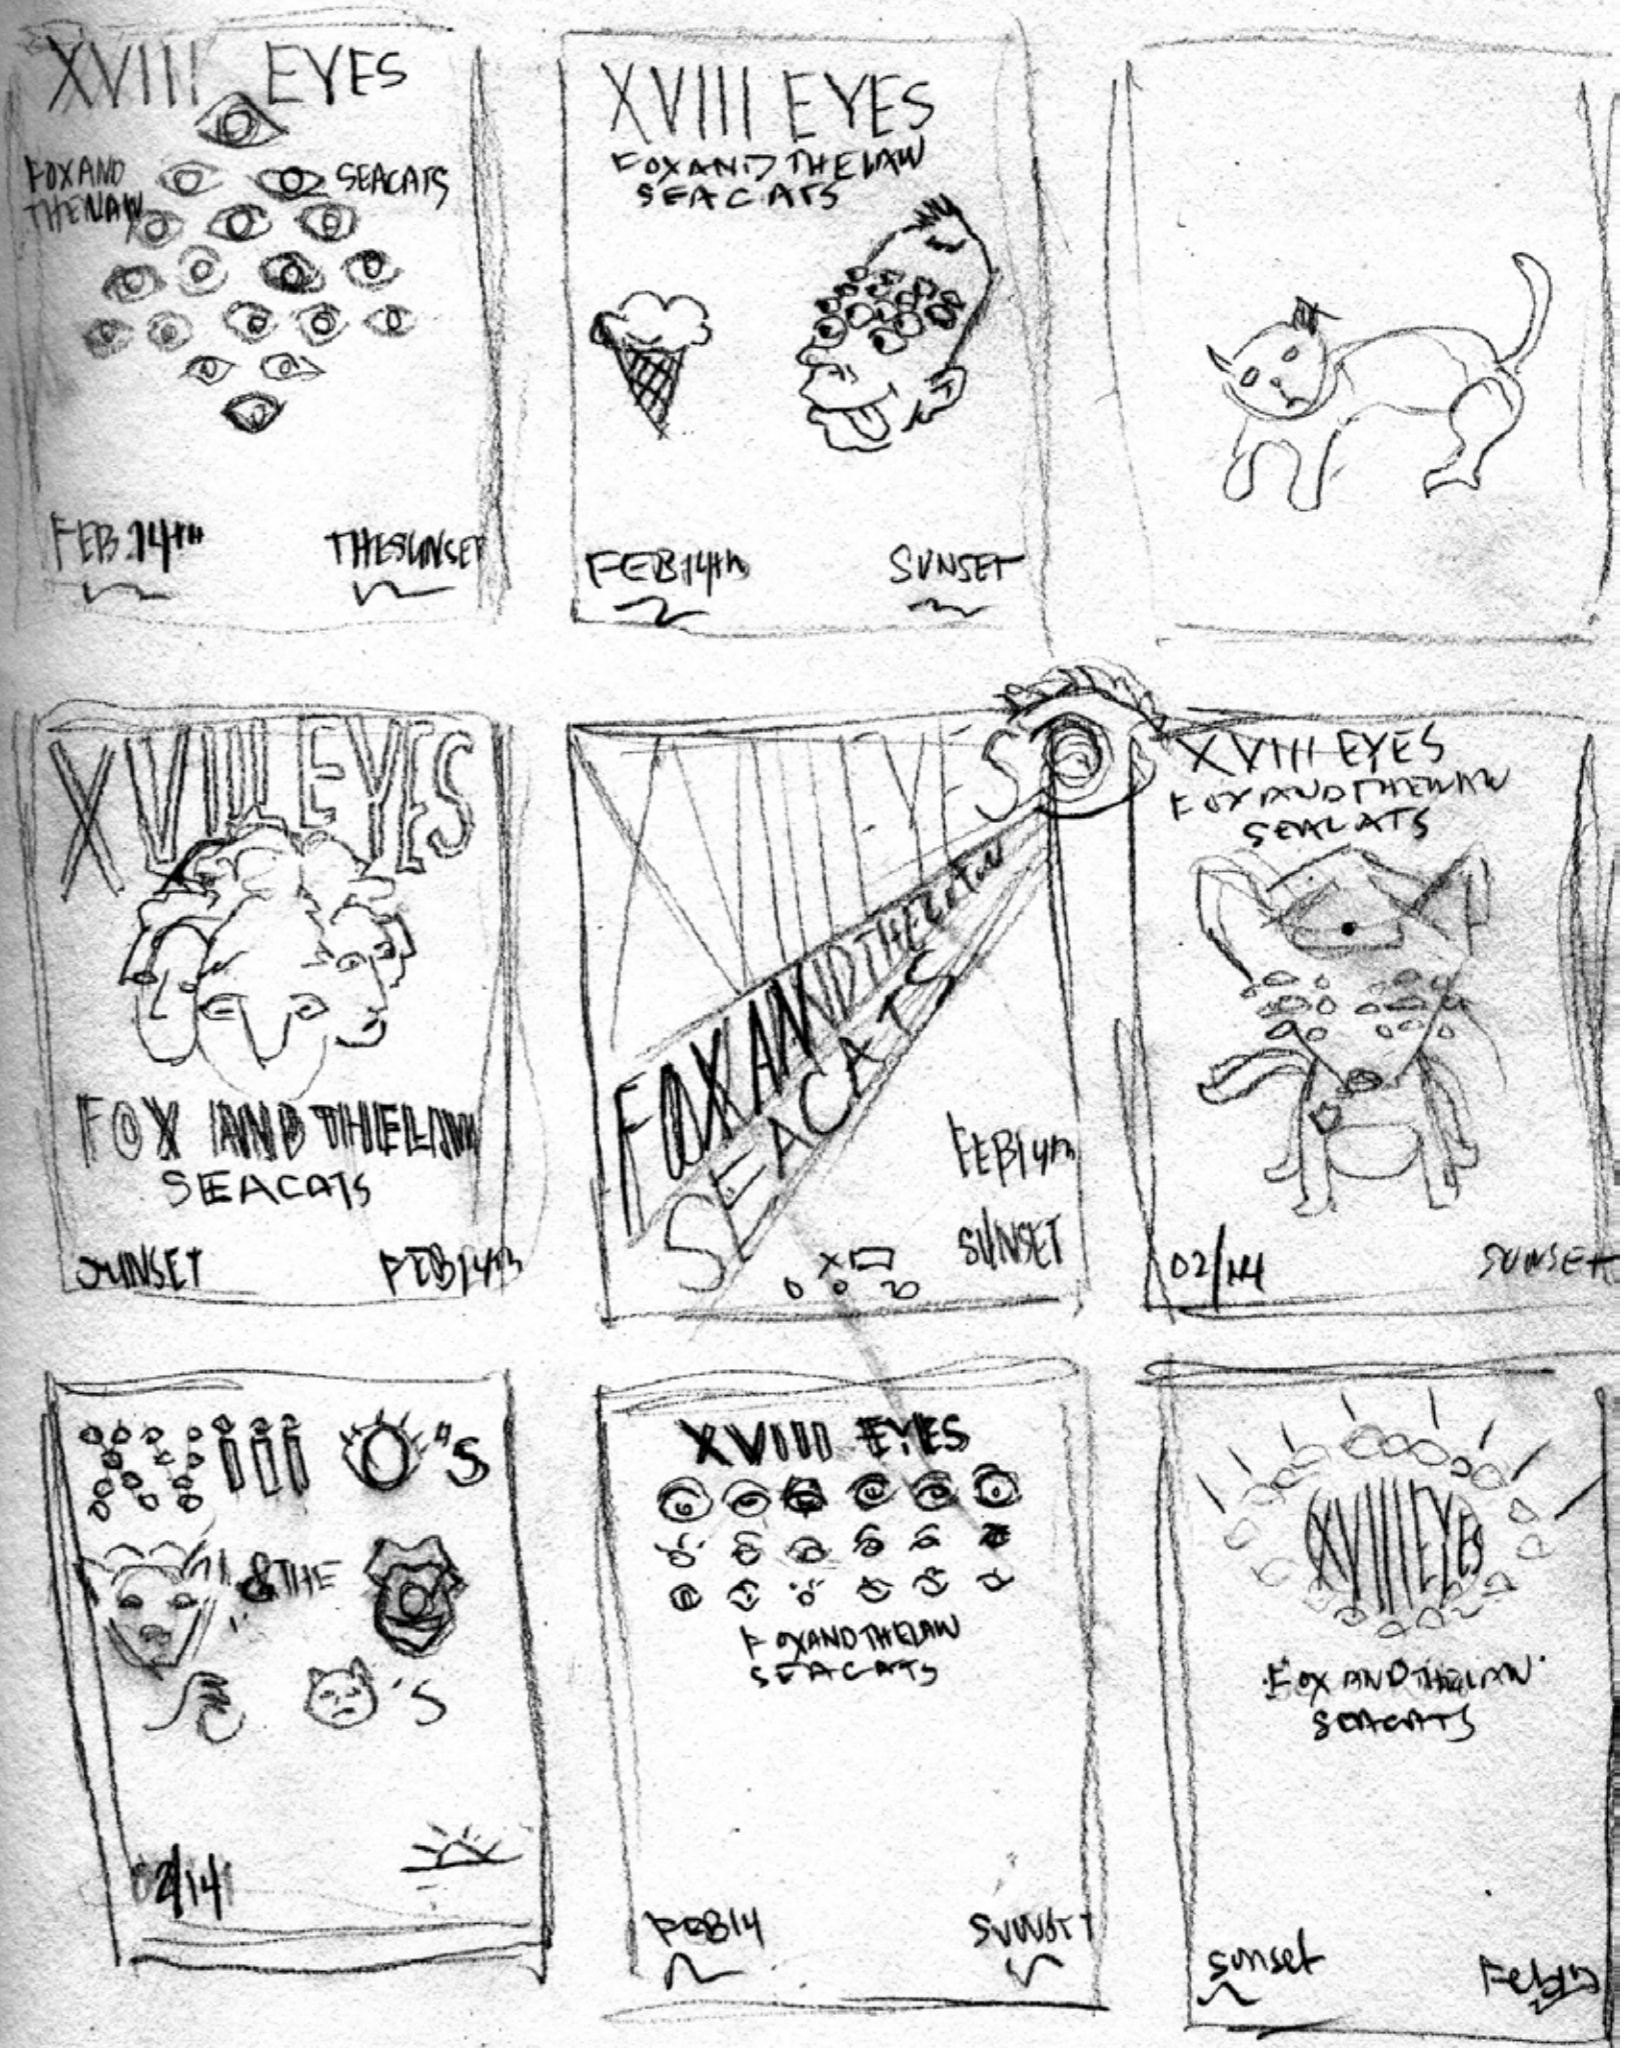 XVIII EYES
FOX AND
THE LAW
SEACATS
FEB 14TH
THE SUNSET
XVIII EYES
FOX AND THE LAW
SEACATS
FEB 14th
SUNSET
XVIII EYES
FOX AND THE LAW
SEACATS
SUNSET
FEB 14th
EYES
FOX AND THE LAW
SEACATS
FEB 14th
SUNSET
XVIII EYES
FOX AND THE LAW
SEACATS
02/14
SUNSET
XVIII O'S
& THE
'S
02/14
XVIII EYES
FOX AND THE LAW
SEACATS
FEB 14
SUNSET
XVIII EYES
FOX AND THE LAW
SEACATS
sunset